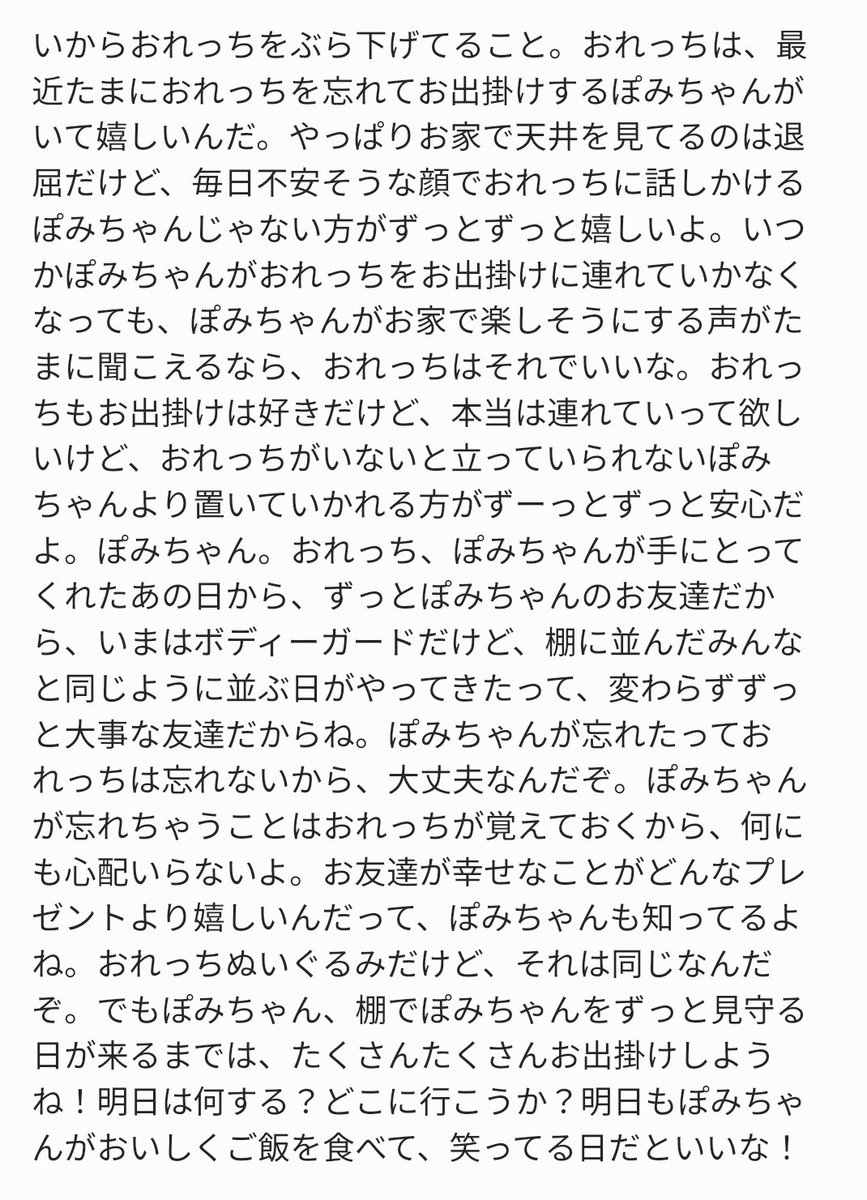 いからおれっちをぶら下げてること。おれっちは、最
近たまにおれっちを忘れてお出掛けするぽみちゃんが
いて嬉しいんだ。やっぱりお家で天井を見てるのは退
屈だけど、毎日不安そうな顔でおれっちに話しかける
ぽみちゃんじゃない方がずっとずっと嬉しいよ。いつ
かぽみちゃんがおれっちをお出掛けに連れていかなく
なっても、ぽみちゃんがお家で楽しそうにする声がた
まに聞こえるなら、おれっちはそれでいいな。おれっ
ちもお出掛けは好きだけど、本当は連れていって欲し
いけど、おれっちがいないと立っていられないぽみ
ちゃんより置いていかれる方がずーっとずっと安心だ
よ。ぽみちゃん。おれっち、ぽみちゃんが手にとって
くれたあの日から、ずっとぽみちゃんのお友達だか
ら、いまはボディーガードだけど、棚に並んだみんな
と同じように並ぶ日がやってきたって、変わらずずっ
と大事な友達だからね。ぽみちゃんが忘れたってお
れっちは忘れないから、大丈夫なんだぞ。ぽみちゃん
が忘れちゃうことはおれっちが覚えておくから、何に
も心配いらないよ。お友達が幸せなことがどんなプレ
ゼントより嬉しいんだって、ぽみちゃんも知ってるよ
ね。おれっちぬいぐるみだけど、それは同じなんだ
ぞ。でもぽみちゃん、棚でぽみちゃんをずっと見守る
日が来るまでは、たくさんたくさんお出掛けしよう
ね！明日は何する？どこに行こうか？明日もぽみちゃ
んがおいしくご飯を食べて、笑ってる日だといいな！